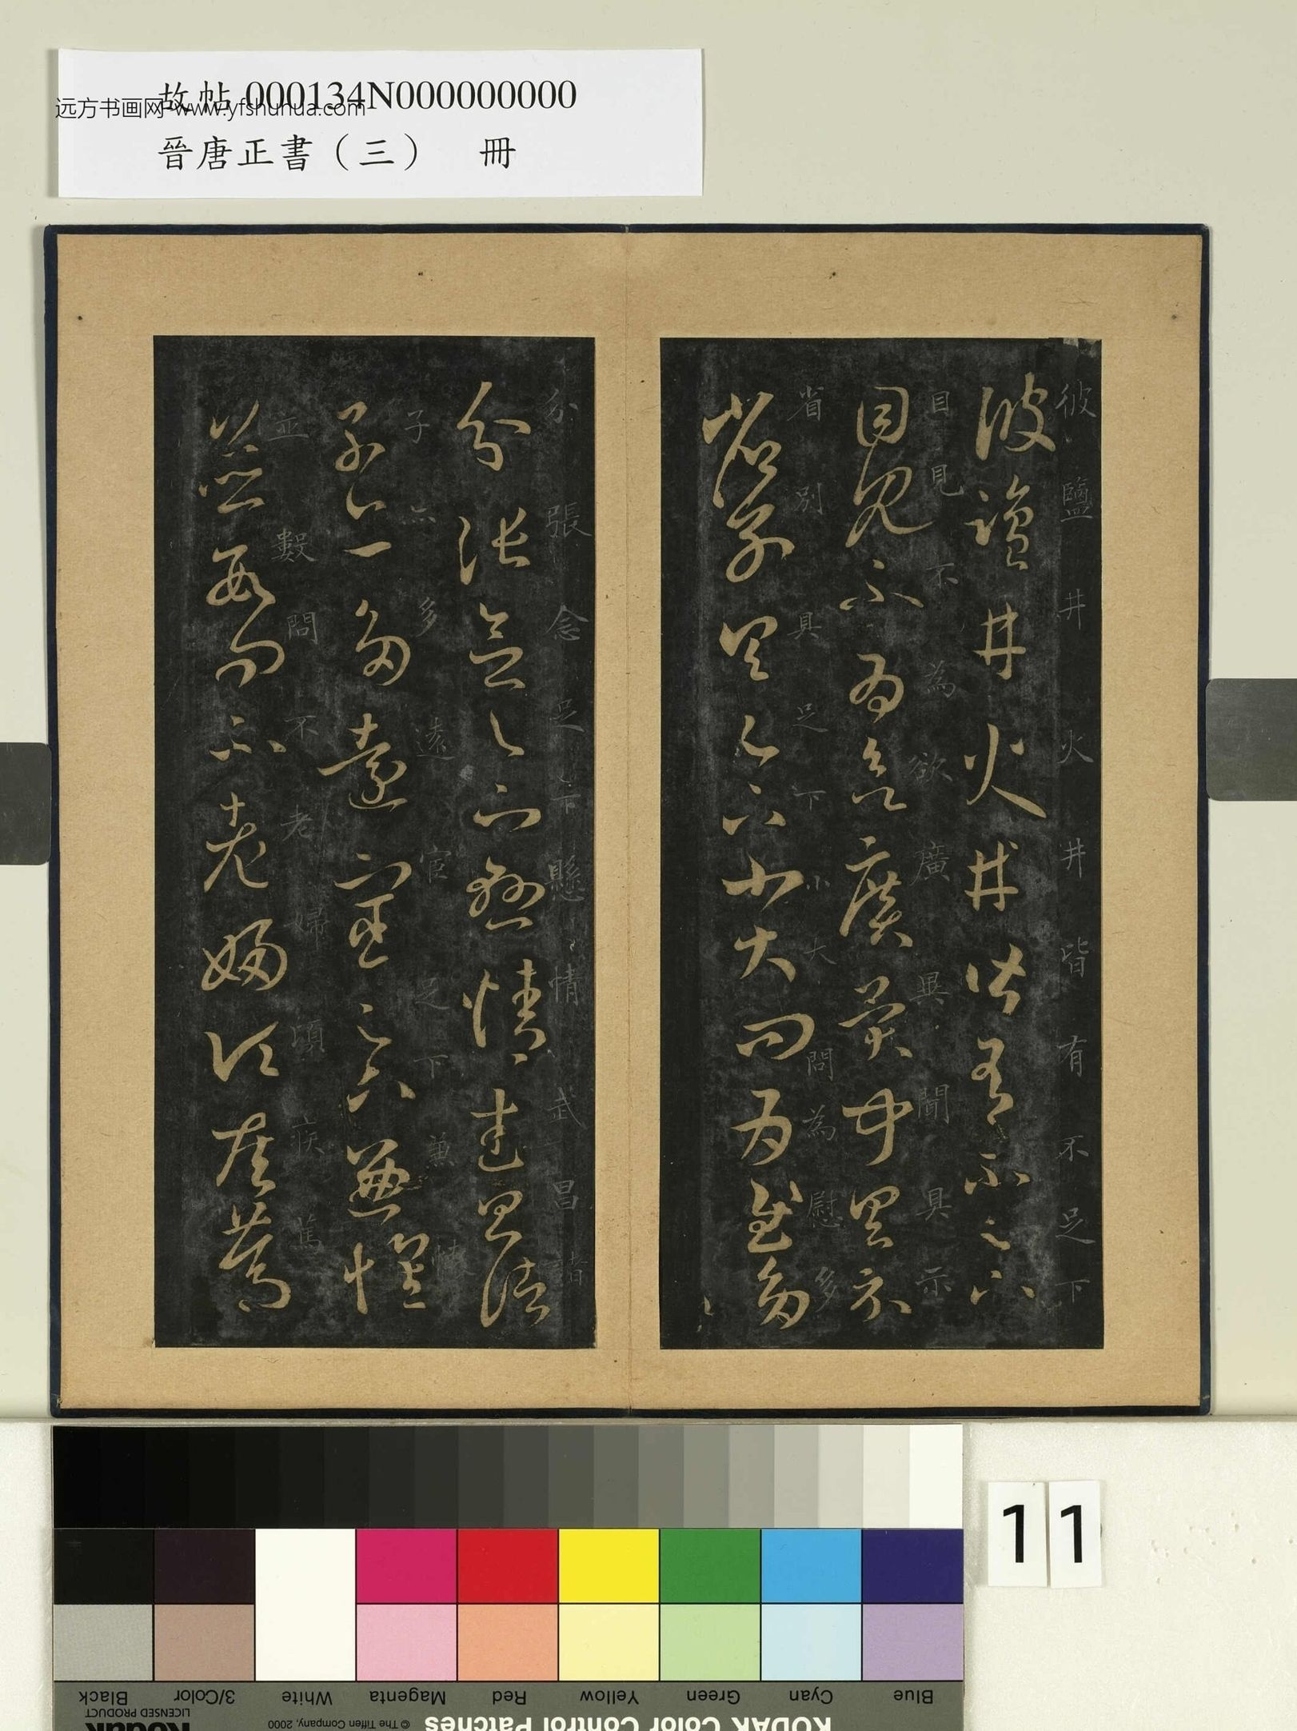 故帖 000134N000000000
远方书画网 www.yfshuhua.com
晉唐正書（三） 冊
彼鹽井火井皆有不足下
彼鹽井火井皆有不足下
目見不為欲廣異聞具示
目見不為欲廣異聞具示
省別具足下小大問為慰多
省別具足下小大問為慰多
分張念足下懸情武昌諸
分張念足下懸情武昌諸
子亦多遠宦足下兼懷
子亦多遠宦足下兼懷
並數問不老婦頃疾篤
並數問不老婦頃疾篤
11
Blue
Cyan
Green
Yellow
Red
Magenta
White
3/Color
Black
KODAK Color Control Patches
© The Tiffen Company, 2000
Kodak
LICENSED PRODUCT